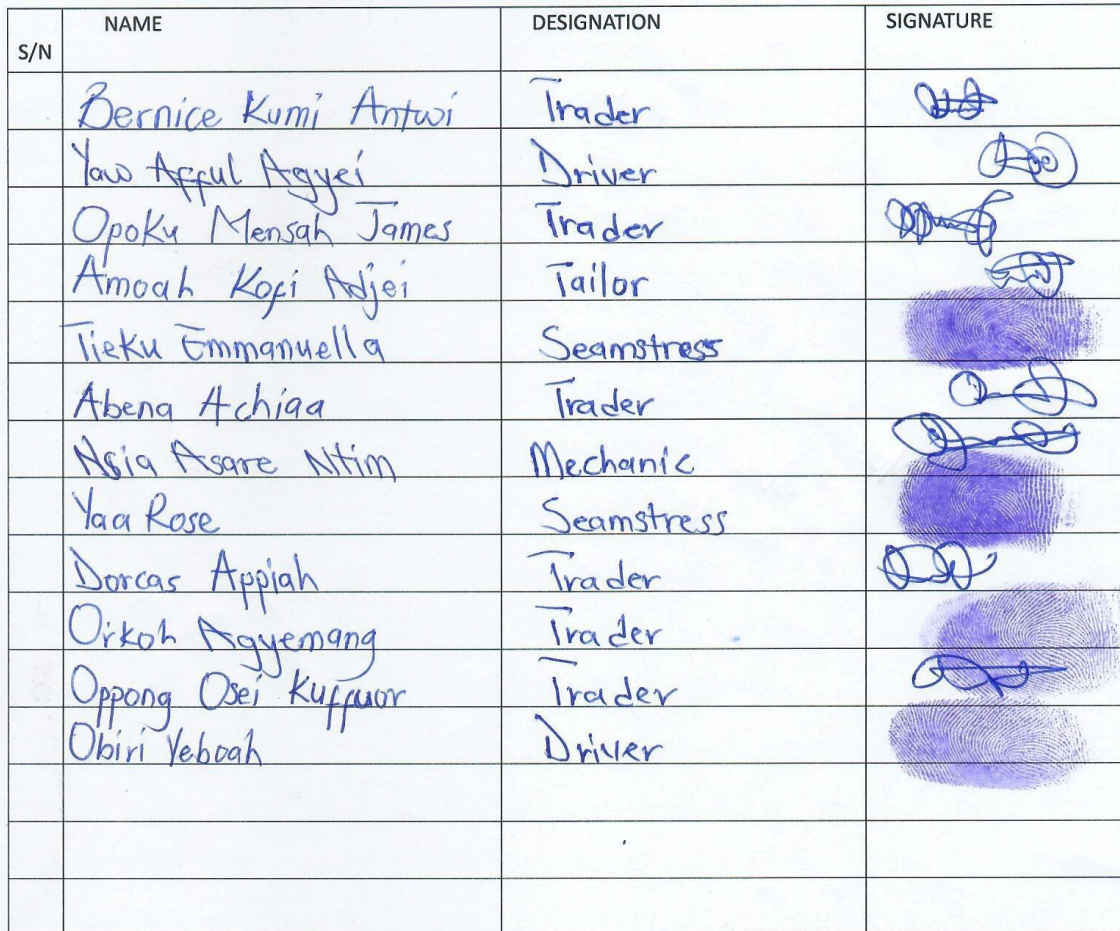 S/N NAME DESIGNATION SIGNATURE
Bernice Kumi Antwi Trader
Yaw Afful Agyei Driver
Opoku Mensah James Trader
Amoah Kofi Adjei Tailor
Tieku Emmanuella Seamstress
Abena Achiaa Trader
Nsia Asare Ntim Mechanic
Yaa Rose Seamstress
Dorcas Appiah Trader
Orkoh Agyemang Trader
Oppong Osei Kuffuor Trader
Obiri Yeboah Driver